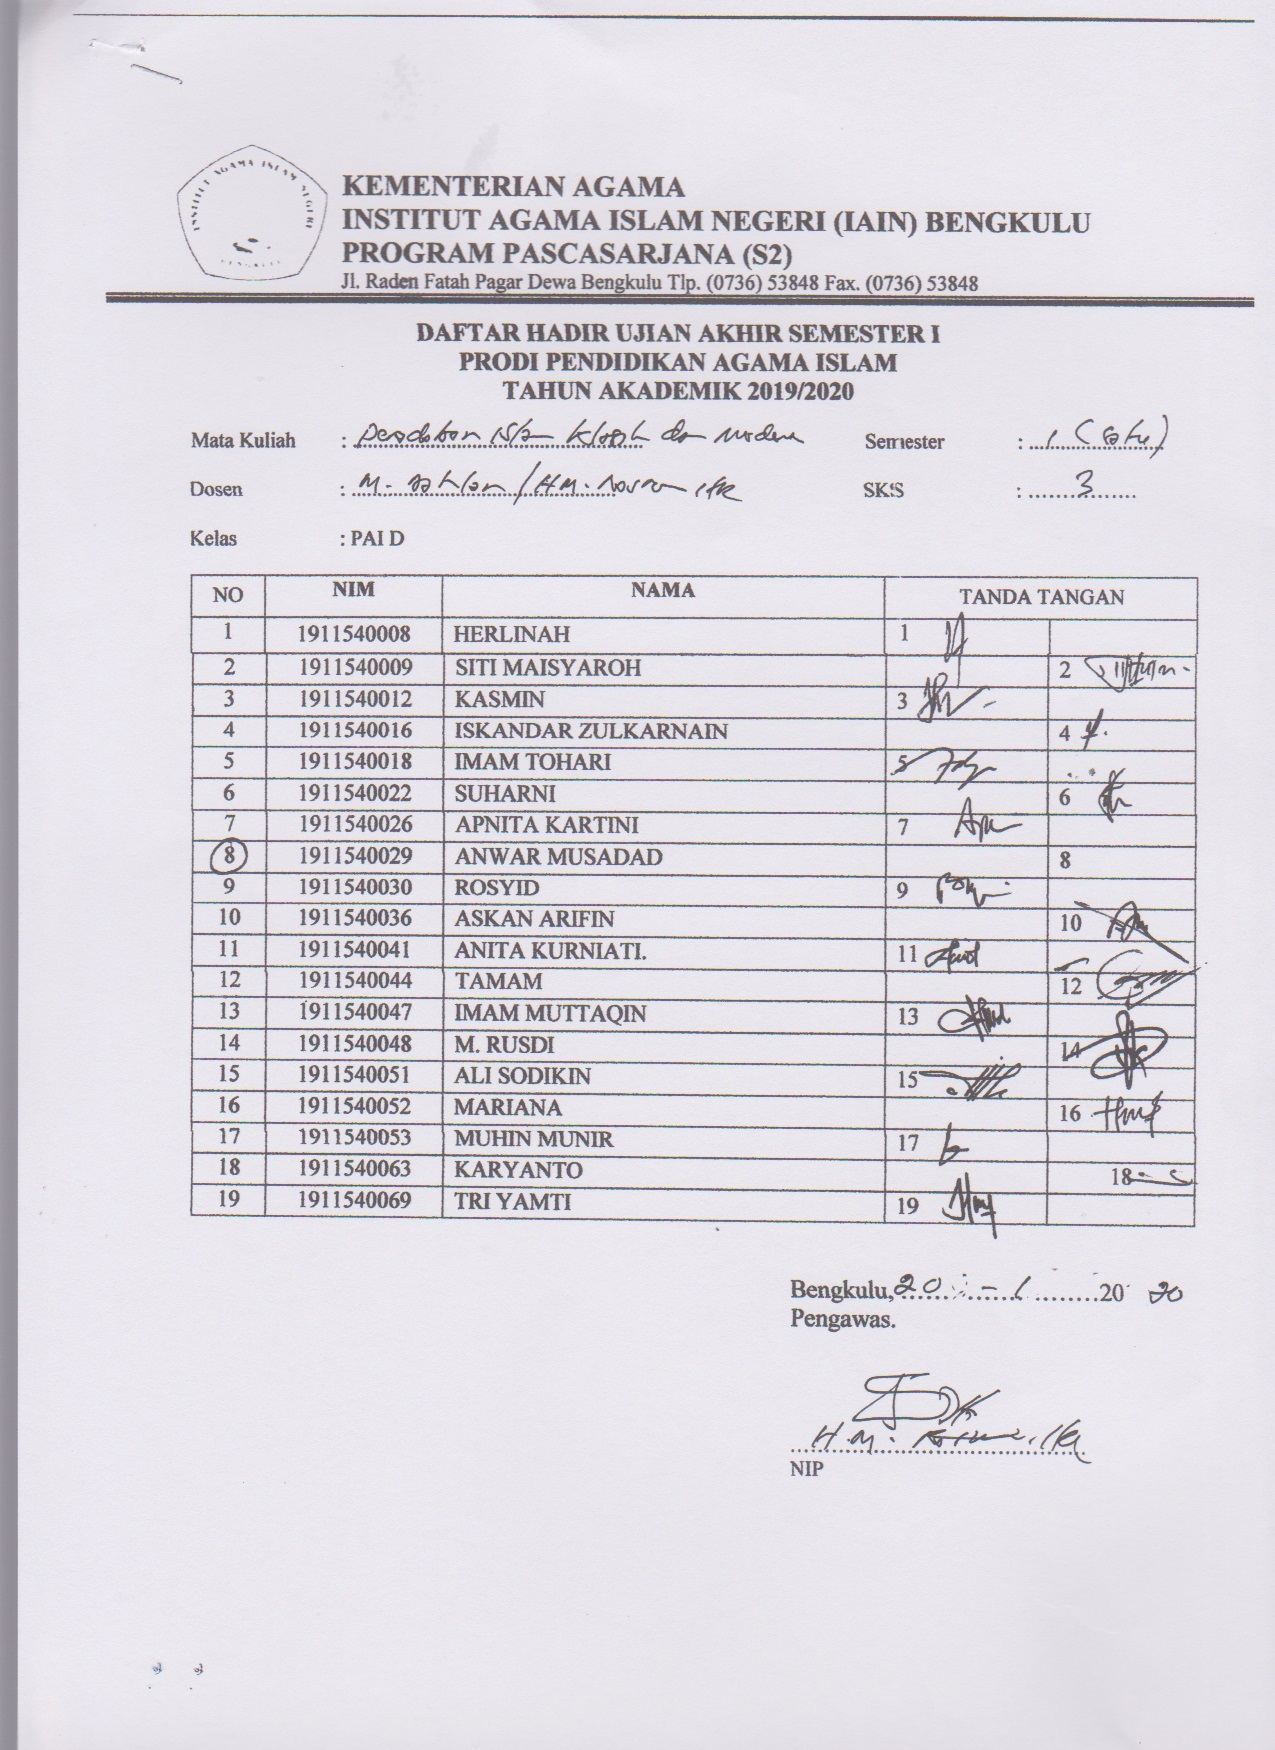 INSTITUT AGAMA ISLAM NEGERI
BENGKULU
KEMENTERIAN AGAMA
INSTITUT AGAMA ISLAM NEGERI (IAIN) BENGKULU
PROGRAM PASCASARJANA (S2)
Jl. Raden Fatah Pagar Dewa Bengkulu Tlp. (0736) 53848 Fax. (0736) 53848
DAFTAR HADIR UJIAN AKHIR SEMESTER I
PRODI PENDIDIKAN AGAMA ISLAM
TAHUN AKADEMIK 2019/2020
Mata Kuliah : Peradaban Islam Klasik dan Modern Semester : 1 (satu)
Dosen : M. / H.M. SKS : 3
Kelas : PAI D
NO NIM NAMA TANDA TANGAN
1 1911540008 HERLINAH 1
2 1911540009 SITI MAISYAROH 2
3 1911540012 KASMIN 3
4 1911540016 ISKANDAR ZULKARNAIN 4
5 1911540018 IMAM TOHARI 5
6 1911540022 SUHARNI 6
7 1911540026 APNITA KARTINI 7
8 1911540029 ANWAR MUSADAD 8
9 1911540030 ROSYID 9
10 1911540036 ASKAN ARIFIN 10
11 1911540041 ANITA KURNIATI. 11
12 1911540044 TAMAM 12
13 1911540047 IMAM MUTTAQIN 13
14 1911540048 M. RUSDI 14
15 1911540051 ALI SODIKIN 15
16 1911540052 MARIANA 16
17 1911540053 MUHIN MUNIR 17
18 1911540063 KARYANTO 18
19 1911540069 TRI YAMTI 19
Bengkulu, 20 - 1 2020
Pengawas.
H.M.
NIP